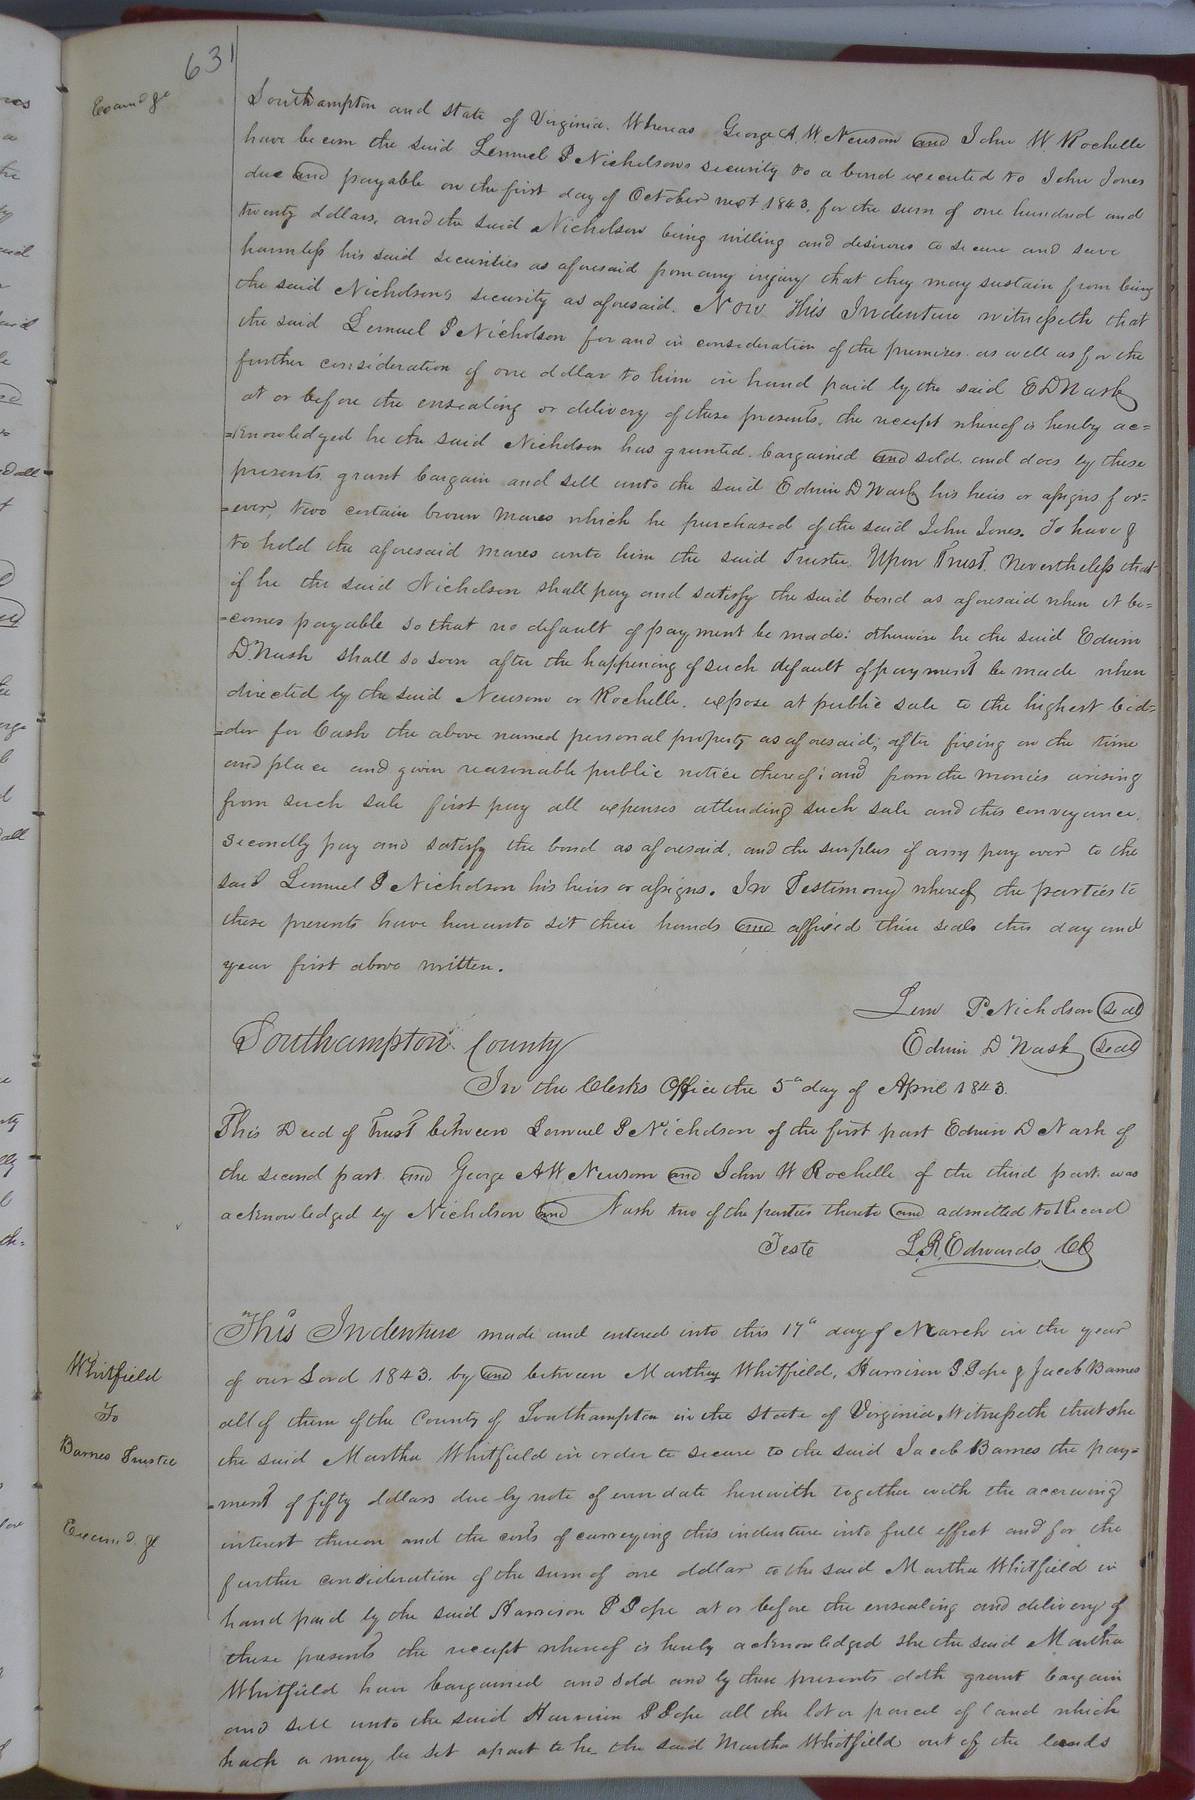 631
Examd &c
Southampton and state of Virginia. Whereas George A. W. Newsom and John W Rochelle
have becom the said Lemuel P Nicholsons security to a bond executed to John Jones
due and payable on the first day of October next 1843. for the sum of one hundred and
twenty dollars. and the said Nicholson being willing and desirous to secure and save
harmless his said securities as aforesaid from any injury that they may sustain from being
the said Nicholsons security as aforesaid. Now This Indenture witnesseth that
the said Lemuel P Nicholson for and in consideration of the premises as well as for the
further consideration of one dollar to him in hand paid by the said E D Nash
at or before the ensealing or delivery of these presents, the receipt whereof is hereby ac=
=knowledged he the said Nicholson has granted. bargained and sold. and does by these
presents, grant bargain and sell unto the said Edwin D Nash his heirs or assigns for=
=ever, two certain brown mares which he purchased of the said John Jones. To have &
to hold the aforesaid mares unto him the said Trustee. Upon Trust. Nevertheless that
if he the said Nicholson shall pay and satisfy the said bond as aforesaid when it be=
=comes payable so that no default of payment be made: otherwise he the said Edwin
D. Nash shall so soon after the happening of such default of payment be made when
directed by the said Newsom or Rochelle. expose at public sale to the highest bid=
=der for Cash the above named personal property as aforesaid; after fixing on the time
and place and given reasonable public notice thereof; and from the monies arising
from such sale first pay all expenses attending such sale and this conveyance,
Secondly pay and satisfy the bond as aforesaid. and the surplus if any pay over to the
said Lemuel P Nicholson his heirs or assigns. In Testimony whereof the parties to
these presents have hereunto set their hands and affixed their seals this day and
year first above written.
Lem P. Nicholson Seal
Edwin D Nash Seal
Southampton County
In the Clerks Office the 5th day of April 1843.
This Deed of Trust between Lemuel P Nicholson of the first part Edwin D Nash of
the second part and George A W Newsom and John W Rochelle of the third part. was
acknowledged by Nicholson and Nash two of the parties thereto and admitted to Record
Teste L. R. Edwards CC
Whitfield
To
Barnes Trustee
Examd. &c
This Indenture made and entered into this 17th day of March in the year
of our Lord 1843. by and between Martha Whitfield, Harrison P. Pope & Jacob Barnes
all of them of the County of Southampton in the State of Virginia. Witnesseth that she
the said Martha Whitfield in order to secure to the said Jacob Barnes the pay=
=ment of fifty dollars due by note of even date herewith together with the accruing
interest thereon and the costs of carreying this indenture into full effect and for the
further consideration of the sum of one dollar to the said Martha Whitfield in
hand paid by the said Harrison P Pope at or before the ensealing and delivery of
these presents the receipt whereof is hereby acknowledged she the said Martha
Whitfield have bargained and sold and by these presents doth grant bargain
and sell unto the said Harrison P Pope all the lot or parcel of land which
hath or may be set apart to he the said Martha Whitfield out of the lands